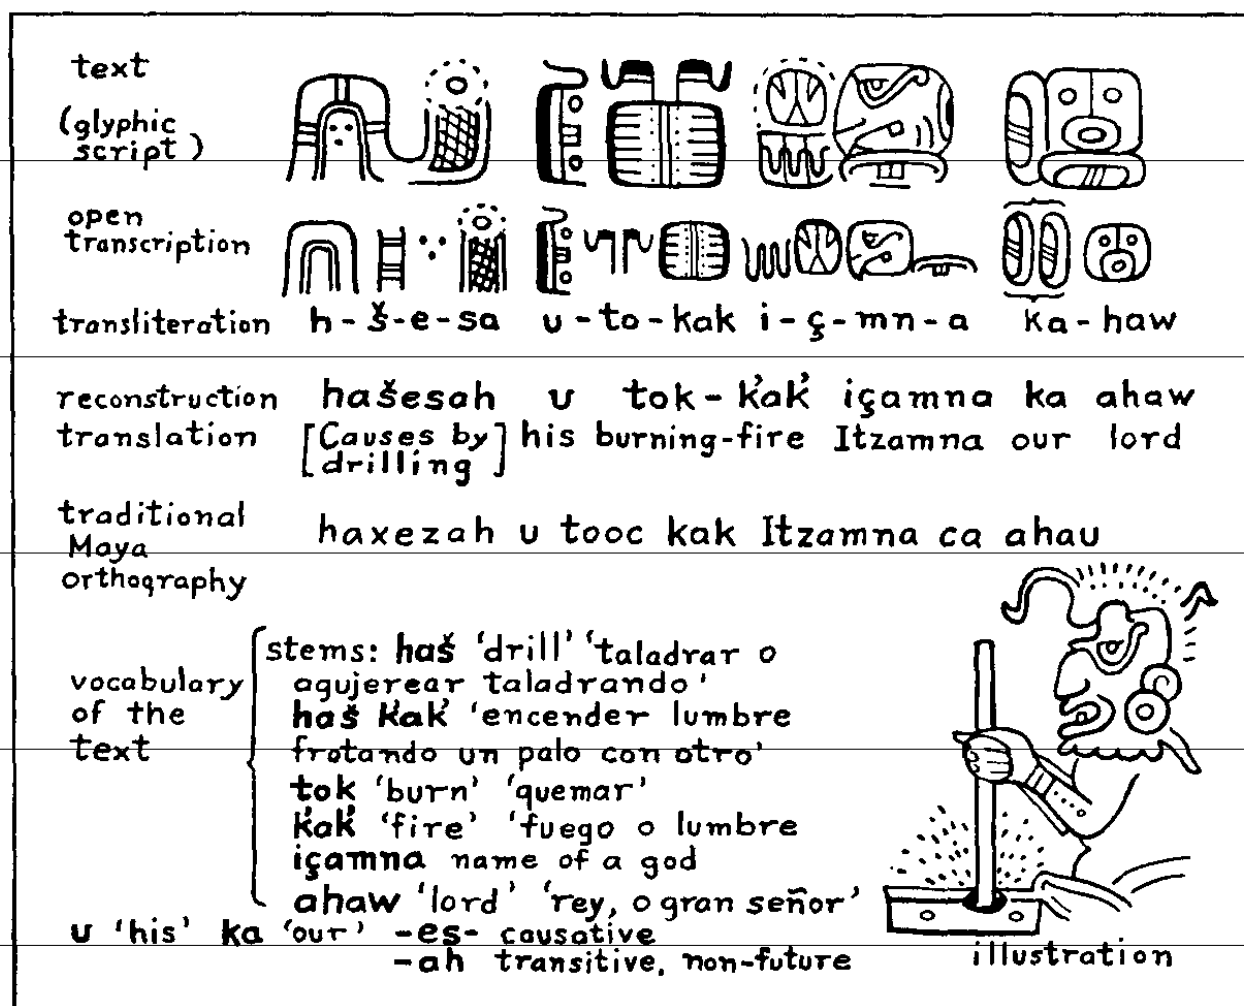 text
(glyphic
script)
open
transcription
transliteration h-š-e-sa u-to-kak i-ç-mn-a ka-haw
reconstruction hašesah u tok-k̓ak̓ içamna ka ahaw
translation [Causes by drilling] his burning-fire Itzamna our lord
traditional
Maya
orthography
haxezah u tooc kak Itzamna ca ahau
vocabulary
of the
text
stems: haš 'drill' 'taladrar o
agujerear taladrando'
haš k̓ak̓ 'encender lumbre
frotando un palo con otro'
tok 'burn' 'quemar'
k̓ak̓ 'fire' 'fuego o lumbre
içamna name of a god
ahaw 'lord' 'rey, o gran señor'
u 'his' ka 'our' -es- causative
-ah transitive, non-future
illustration